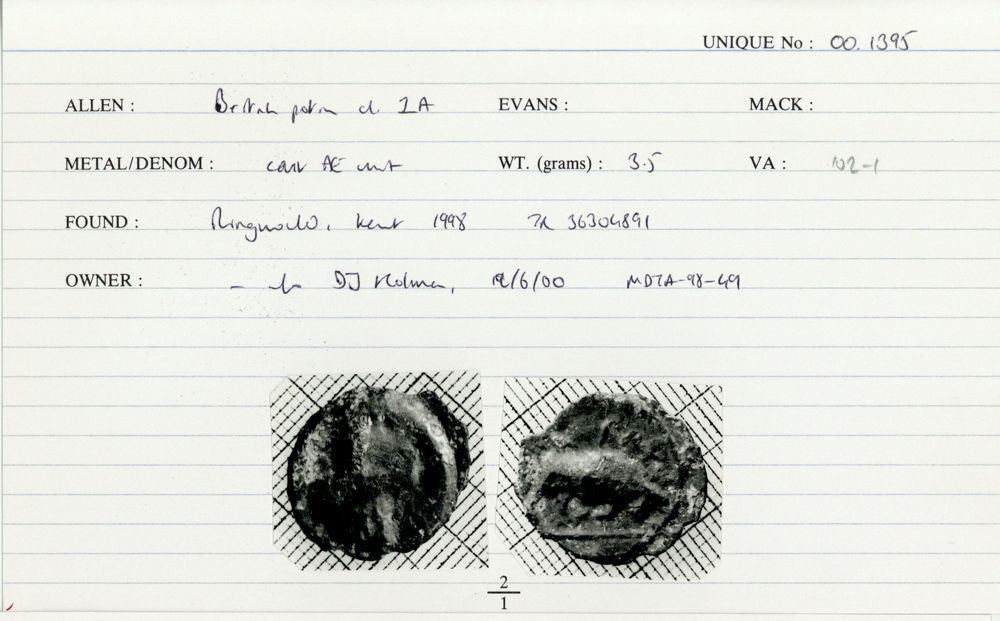 UNIQUE No : 00.1395
ALLEN : British potin cl. 1A EVANS : MACK :
METAL/DENOM : cast AE unit WT. (grams) : 3.5 VA : 102-1
FOUND : Ringwould, Kent 1998 TR 36304891
OWNER : - DJ Holman, 12/6/00 MDTA-98-49
2
1